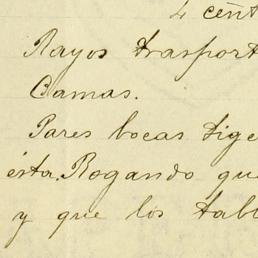 4 cént
Rayos trasport
Camas.
Pares bocas tige
ésta. Rogando que
y que los tabl